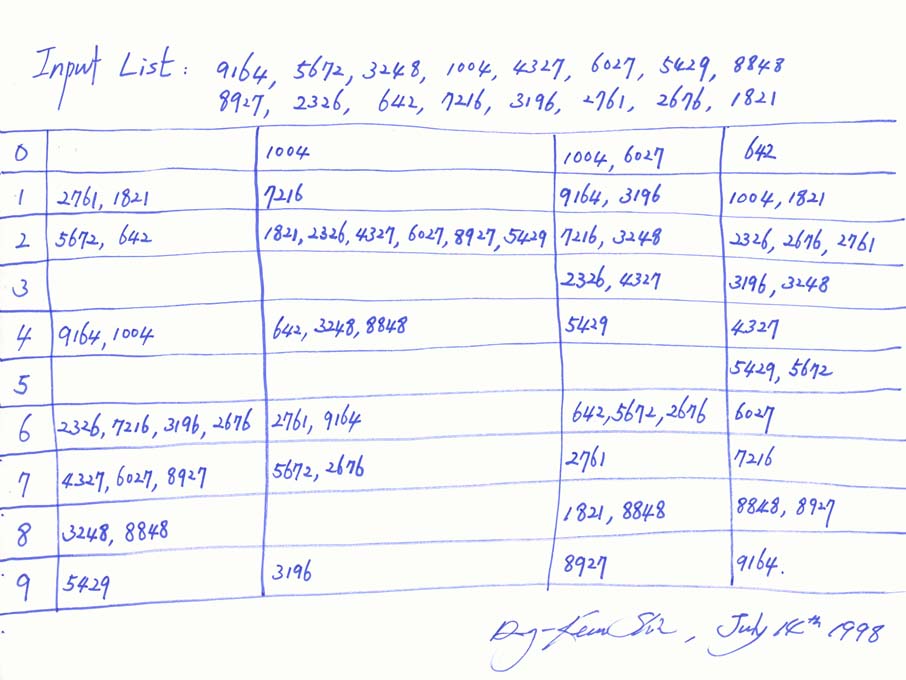 Input List: 9164, 5672, 3248, 1004, 4327, 6027, 5429, 8848
8927, 2326, 642, 7216, 3196, 2761, 2676, 1821
0 1004 1004, 6027 642
1 2761, 1821 7216 9164, 3196 1004, 1821
2 5672, 642 1821, 2326, 4327, 6027, 8927, 5429 7216, 3248 2326, 2676, 2761
3 2326, 4327 3196, 3248
4 9164, 1004 642, 3248, 8848 5429 4327
5 5429, 5672
6 2326, 7216, 3196, 2676 2761, 9164 642, 5672, 2676 6027
7 4327, 6027, 8927 5672, 2676 2761 7216
8 3248, 8848 1821, 8848 8848, 8927
9 5429 3196 8927 9164.
, July 14th 1998